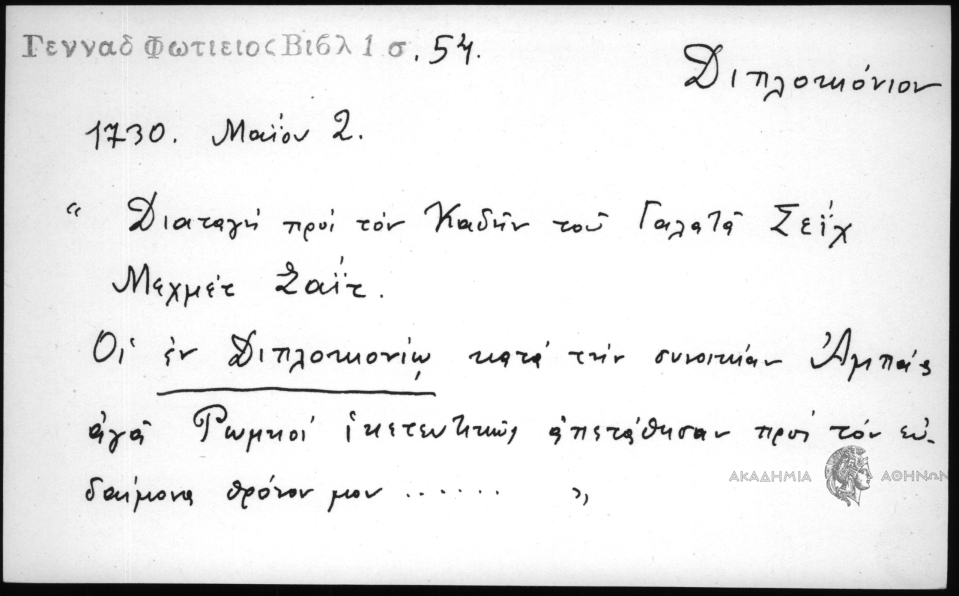 Γενναδ Φωτιειος Βιβλ 1 σ. 54.
Διπλοκιόνιον
1730. Μαΐου 2.
“ Διαταγή πρὸς τὸν Καδῆν τοῦ Γαλατᾶ Σεΐχ
Μεχμὲτ Σαΐτ.
Οἱ ἐν Διπλοκιονίῳ κατὰ τὴν συνοικίαν Ἀμπᾶς
ἀγᾶ Ρωμιοί ἱκετευτικῶς ἀπετάθησαν πρὸς τὸν εὐ-
δαίμονα θρόνον μου ...... ”
ΑΚΑΔΗΜΙΑ ΑΘΗΝΩΝ